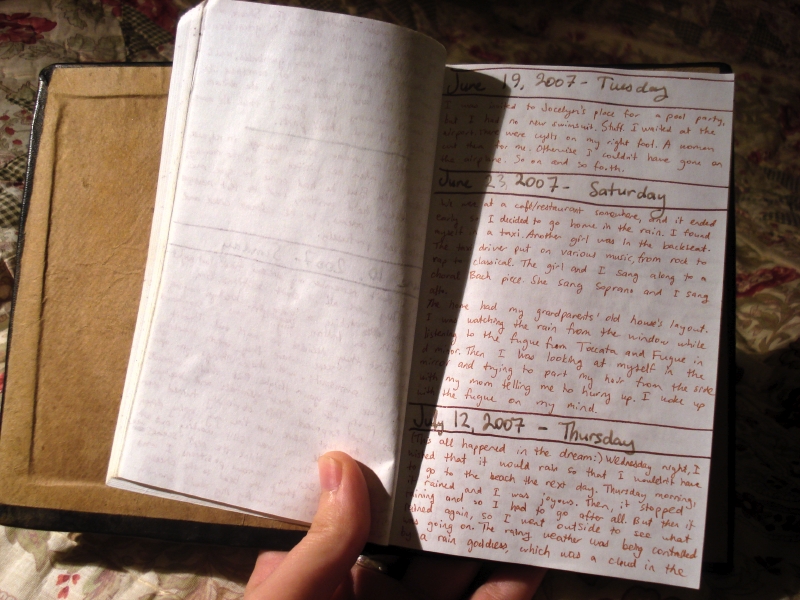 June 19, 2007 - Tuesday
I was invited to Jocelyn's place for a pool party,
but I had no new swimsuit. Stuff. I waited at the
airport. There were cysts on my right foot. A woman
cut them for me. Otherwise I couldn't have gone on
the airplane. So on and so forth.
June 23, 2007 - Saturday
We met at a café/restaurant somewhere, and it ended
early, so I decided to go home in the rain. I found
myself in a taxi. Another girl was in the backseat.
The taxi driver put on various music, from rock to
rap to classical. The girl and I sang along to a
choral Bach piece. She sang soprano and I sang
alto.
The home had my grandparents' old house's layout.
I was watching the rain from the window while
listening to the fugue from Toccata and Fugue in
d minor. Then I was looking at myself in the
mirror and trying to part my hair from the side
with my mom telling me to hurry up. I woke up
with the fugue on my mind.
July 12, 2007 - Thursday
This all happened in the dream:) Wednesday night, I
wished that it would rain so that I wouldn't have
to go to the beach the next day. Thursday morning,
it rained and I was joyous. Then, it stopped
raining and so I had to go after all. But then it
rained again, so I went outside to see what
was going on. The rainy weather was being controlled
by a rain goddess, which was a cloud in the